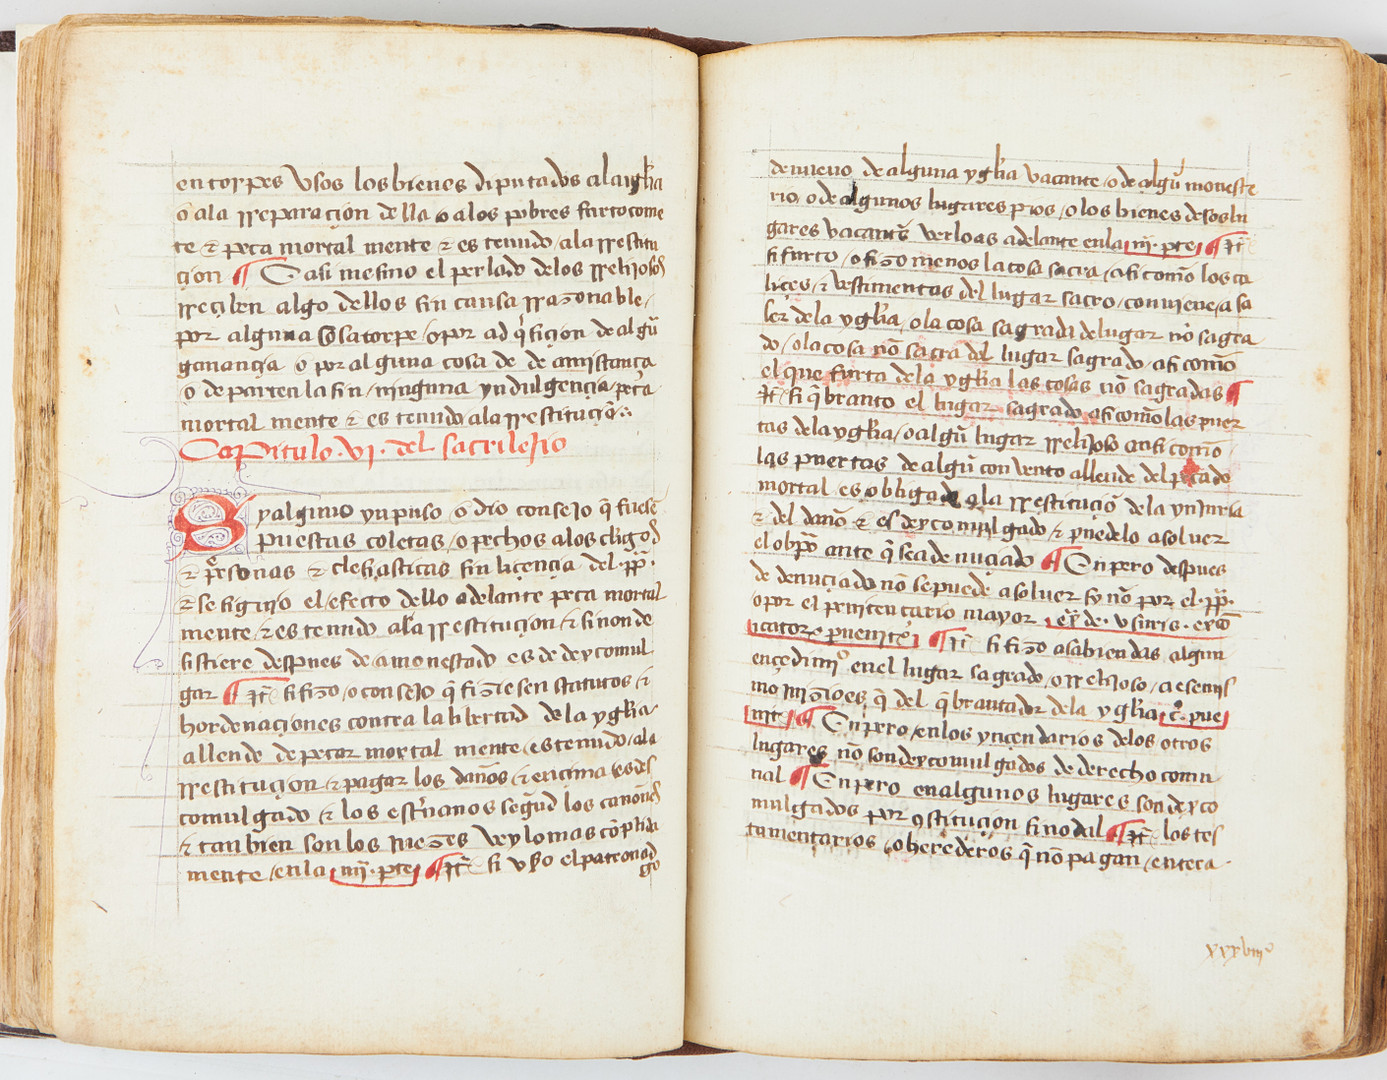 en torpes vsos los bienes diputados ala igłia
o ala rreparaçion della o alos pobres furto come
te ⁊ peca mortal mente ⁊ es tenudo ala rrestitu
çion ¶ E asi mesmo el perlado delos rrelijosos
rreçiben algo dellos sin causa rrazonable,
por alguna cosa torpe, o por ad q̃siçion de algũ
ganançia o por alguna cosa de de amistança
o de parientela sin ninguna yndulgençia peca
mortal mente ⁊ es tenudo ala rrestituçiõ:.
Capitulo .vj. del sacrilejio
Sy alguno ynpuso o dio consejo q̃ fuesẽ
puestas coletas, o pechos alos clĩgos
⁊ p̃rsonas eclesiasticas sin liçençia del .pp̃.
⁊ se siguio el efecto dello adelante peca mortal
mente, ⁊ es tenudo ala rrestituçion, ⁊ si non de
sistiere despues de amonestado es de descomul
gar ¶ yt̃ si fizo, o consejo q̃ fiziesen statutos ⁊
hordenaçiones contra la libertad dela ygłia.
allende de pecar mortal mente, es tenudo, ala
rrestituçion ⁊ pagar los daños, ⁊ ençima es des
comulgado ⁊ los escriuanos segũd los canonẽs
⁊ tan bien son los juezes vey lo mas cõplida
mente, en la .iiij. pte ¶ yt̃ si vso el patronad
go
de nueuo de alguna ygłia vacante, o de algũ moneste
rio, o de algunos lugares pios, o los bienes de sos lu
gares vacantẽs verlo as adelante en la .iiij. pte ¶ yt̃
si furto, o fizo menos la cosa sacra, asi como los ca
liçes, ⁊ vestimentas del lugar sacro, conuiene, a sa
ber de la ygłia, o la cosa sagrada de lugar nõ sagra
do, o la cosa nõ sacra del lugar sagrado, asi comõ
el que furta de la ygłia las cosas nõ sagradas ¶
yt̃ si q̃branto el lugar sagrado asi como las puer
tas de la ygłia, o algũ lugar rrelijoso ansi como
las puertas de algũ convento allende del pecado
mortal es obligado a la rrestituciõ de la ynjuria
⁊ del daño ⁊ es descomulgado ⁊ puedelo asoluer
el obpõ ante q̃ sea denuçiado ¶ Enpero despues
de denuçiado nõ se puede asoluer sy nõ por el .pp̃.
o por el penitençiario mayor
¶ yt̃ si fizo a sabiendas algun
ençedimiº en el lugar sagrado, o rrelijoso,
q̃ del q̃brantador de la ygłia
¶ Enpero, en los ynçendarios delos otros
lugares nõ son descomulgados de derecho comu
nal ¶ Enpero en algunos lugares son desco
mulgados por cõstituçion sinodal ¶ yt̃ los tes
tamentarios, o herederos q̃ nõ pagan, entera
xxxviijº